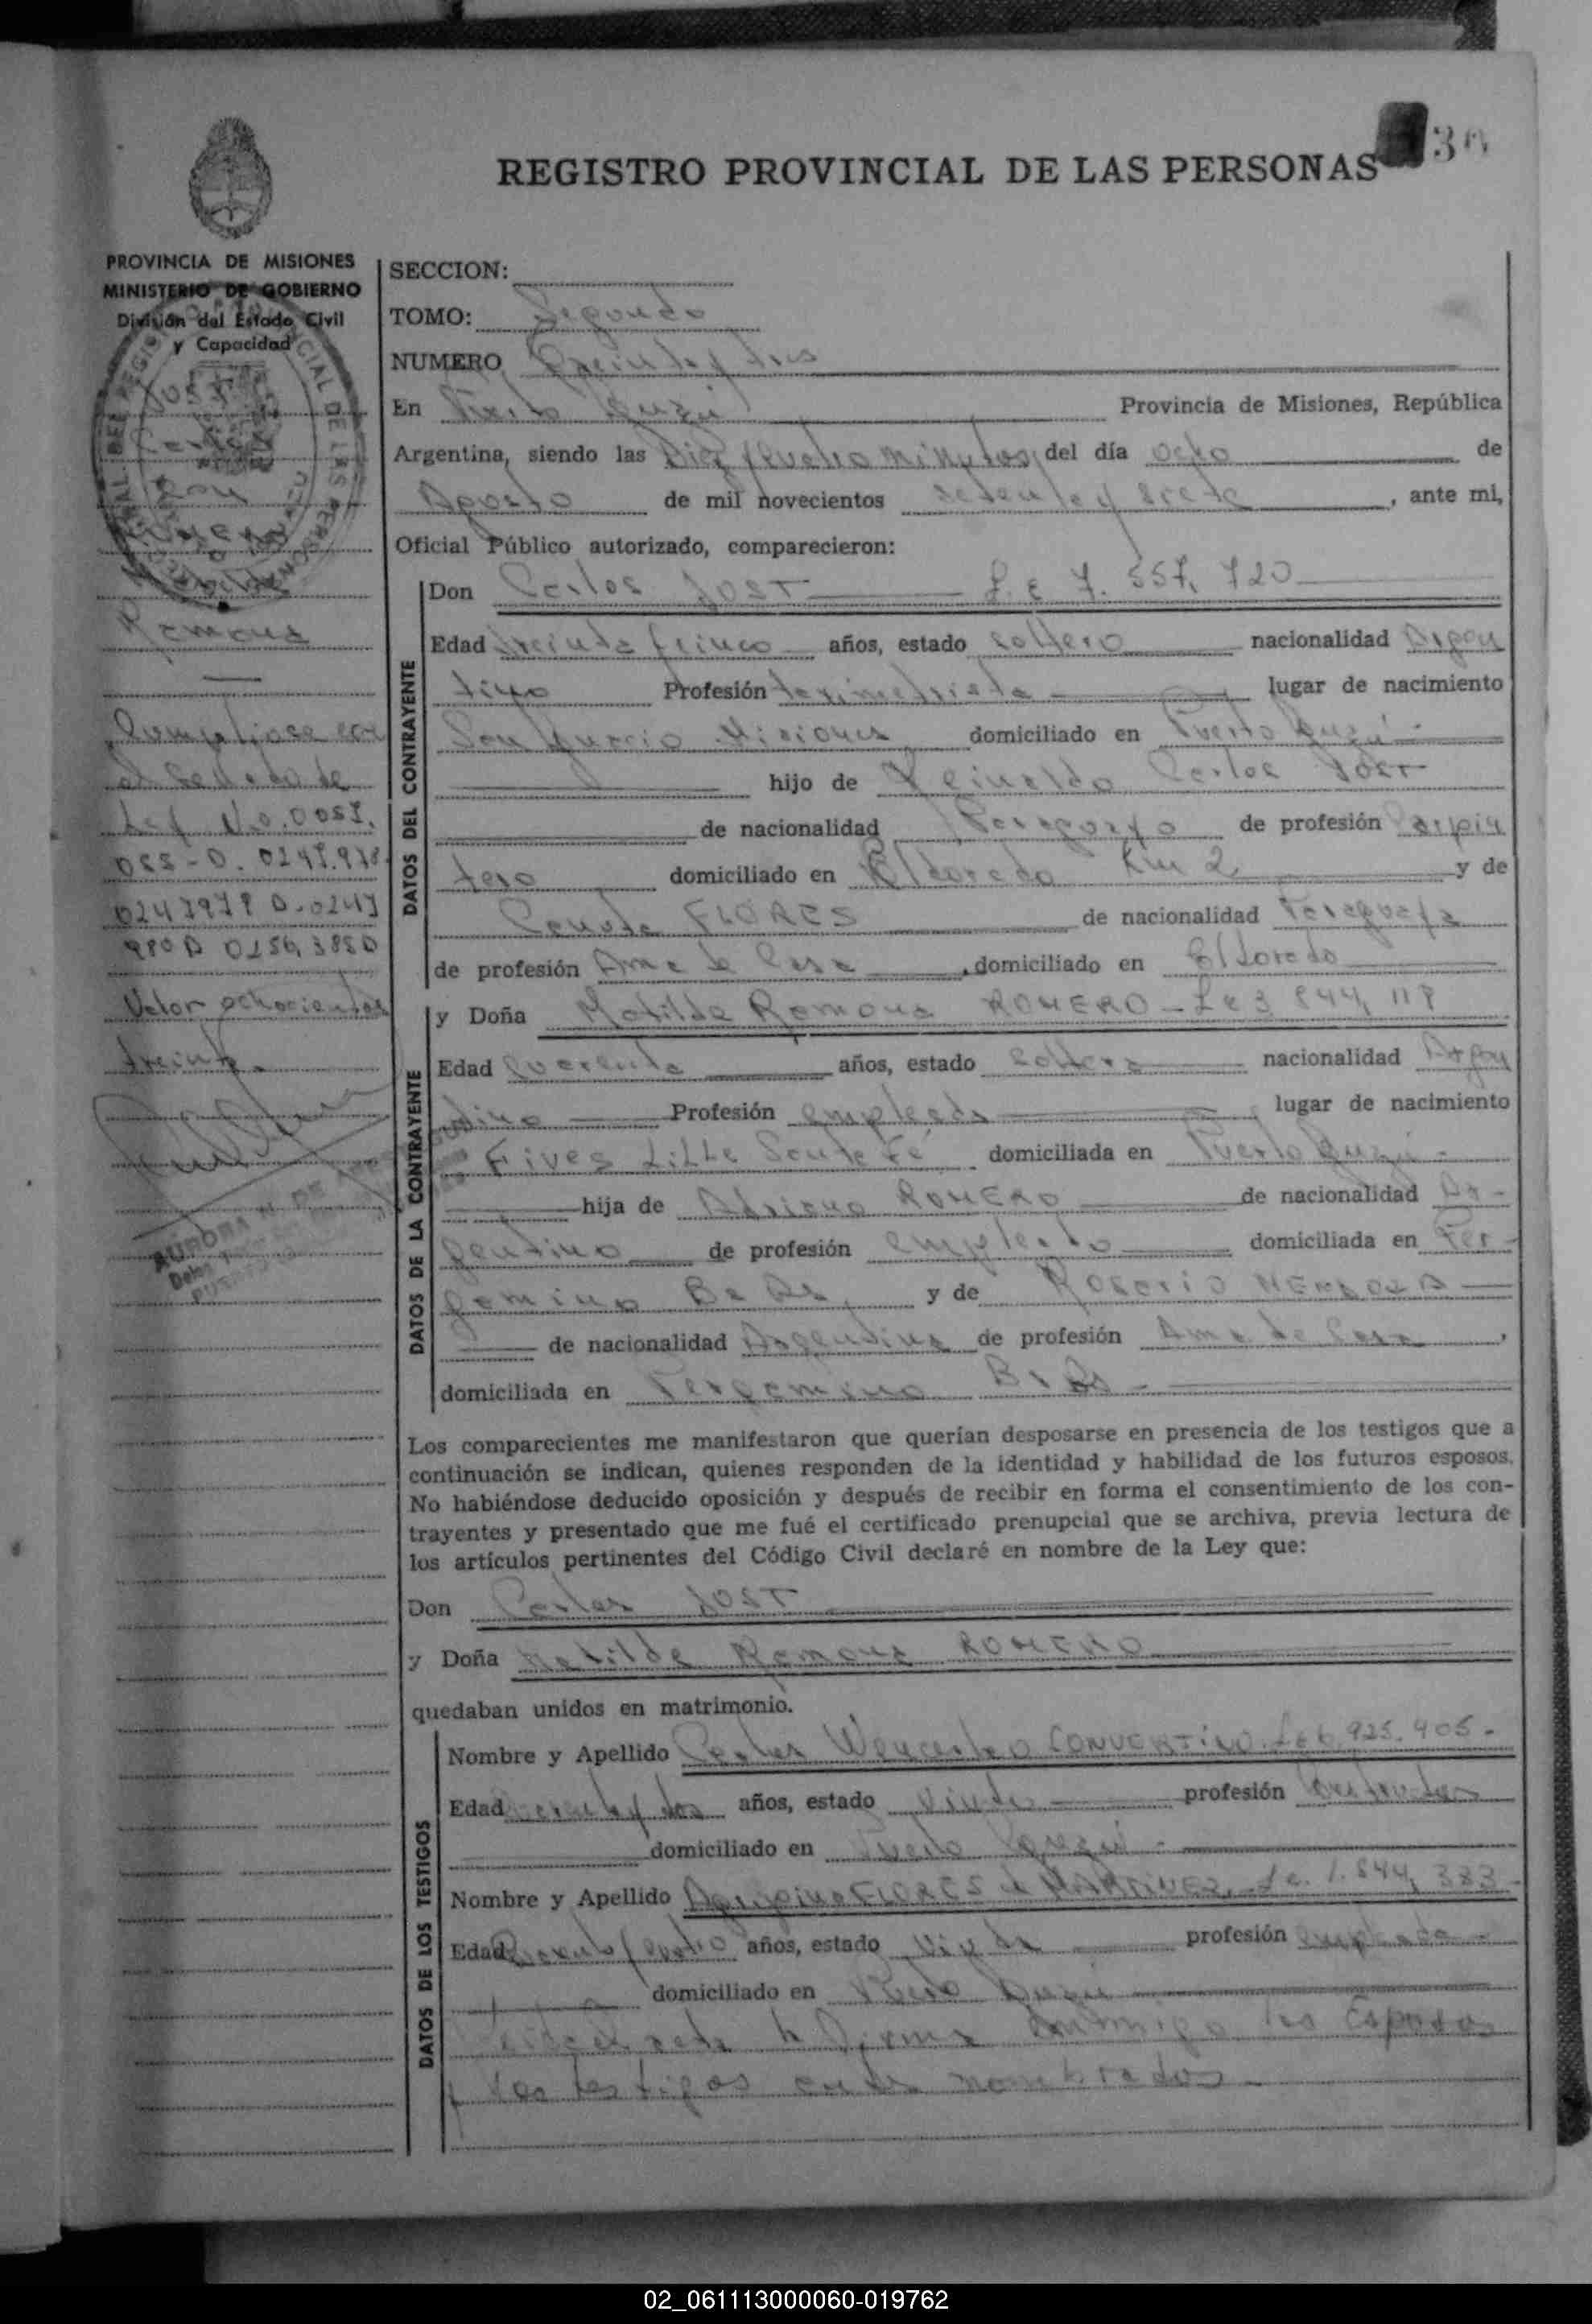 30
REGISTRO PROVINCIAL DE LAS PERSONAS
PROVINCIA DE MISIONES
MINISTERIO DE GOBIERNO
División del Estado Civil
y Capacidad
JOST
Carlos
con
Romero
Matilde
Ramona
Cumpliose con
el Sellado de
Ley No. 0051.
Valor ochocientos
treinta.
SECCION:
TOMO: Segundo
NUMERO Treinta y tres
En Puerto Iguazú Provincia de Misiones, República
Argentina, siendo las Diez y ocho minutos, del día ocho de
Agosto de mil novecientos setenta y siete, ante mi,
Oficial Público autorizado, comparecieron:
DATOS DEL CONTRAYENTE
Don Carlos JOST L.E 7.557.720
Edad treinta y cinco años, estado soltero nacionalidad Argen
tino Profesión taximetrista lugar de nacimiento
San Ignacio Misiones domiciliado en Puerto Iguazú
hijo de Reinaldo Carlos JOST
de nacionalidad Paraguayo de profesión Carpin
tero domiciliado en Eldorado Km 2 y de
FLORES de nacionalidad Paraguaya
de profesión Ama de Casa, domiciliado en Eldorado
DATOS DE LA CONTRAYENTE
y Doña Matilde Ramona ROMERO - L e 3 844, 118
Edad Cuarenta años, estado soltera nacionalidad Argen
tina Profesión empleada lugar de nacimiento
Fives LiLLe Santa Fé domiciliada en Puerto Iguazú -
hija de Adriano ROMERO de nacionalidad Ar-
gentino de profesión empleado domiciliada en Per-
gamino Bs As, y de Rosario MENDOZA
de nacionalidad Argentina de profesión Ama de Casa,
domiciliada en Pergamino Bs As -
Los comparecientes me manifestaron que querían desposarse en presencia de los testigos que a
continuación se indican, quienes responden de la identidad y habilidad de los futuros esposos.
No habiéndose deducido oposición y después de recibir en forma el consentimiento de los con-
trayentes y presentado que me fué el certificado prenupcial que se archiva, previa lectura de
los artículos pertinentes del Código Civil declaré en nombre de la Ley que:
Don Carlos JOST
y Doña Matilde Ramona ROMERO
quedaban unidos en matrimonio.
DATOS DE LOS TESTIGOS
Nombre y Apellido Carlos Wenceslao CONVERTINO. L e 6.925.405.
Edad y dos años, estado Viudo profesión
domiciliado en Puerto Iguazú -
Nombre y Apellido Agripina FLORES de MARTINEZ, L.c. 1.844, 383
Edad y cuatro años, estado Viuda profesión empleada -
domiciliado en Puerto Iguazú
Leida el acta la firma conmigo los Esposos
y los testigos nombrados -
02_061113000060-019762